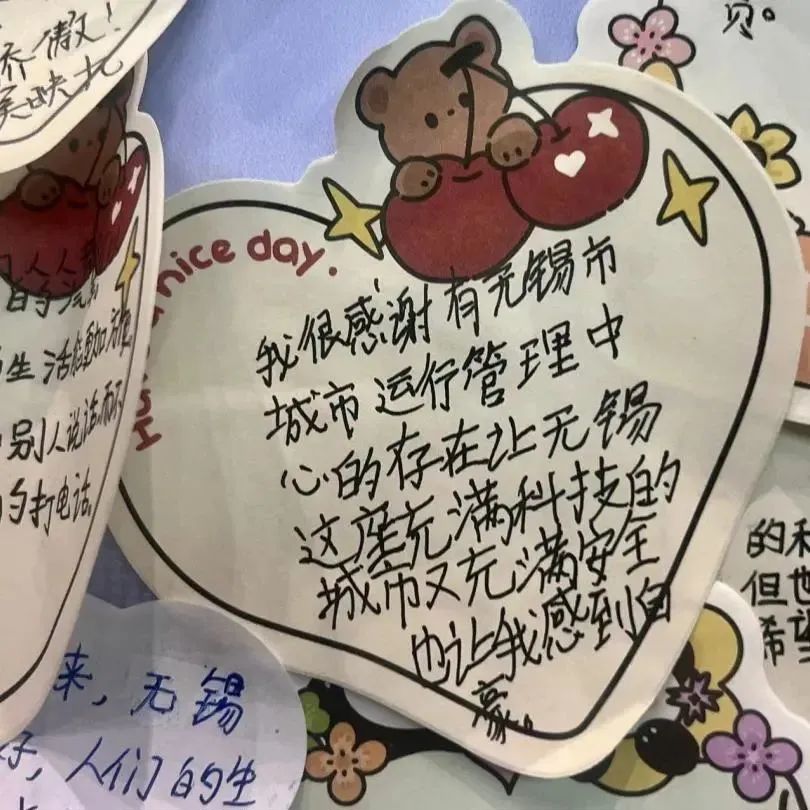 骄傲!
贝。
nice day.
我很感谢有无锡市
城市运行管理中
心的存在让无锡
这座充满科技的
城市又充满安全
也让我感到自
豪。
人人
生活能更加
别人说话而不
打电话。
来,无锡
好,人们的生
的科
但也
希望